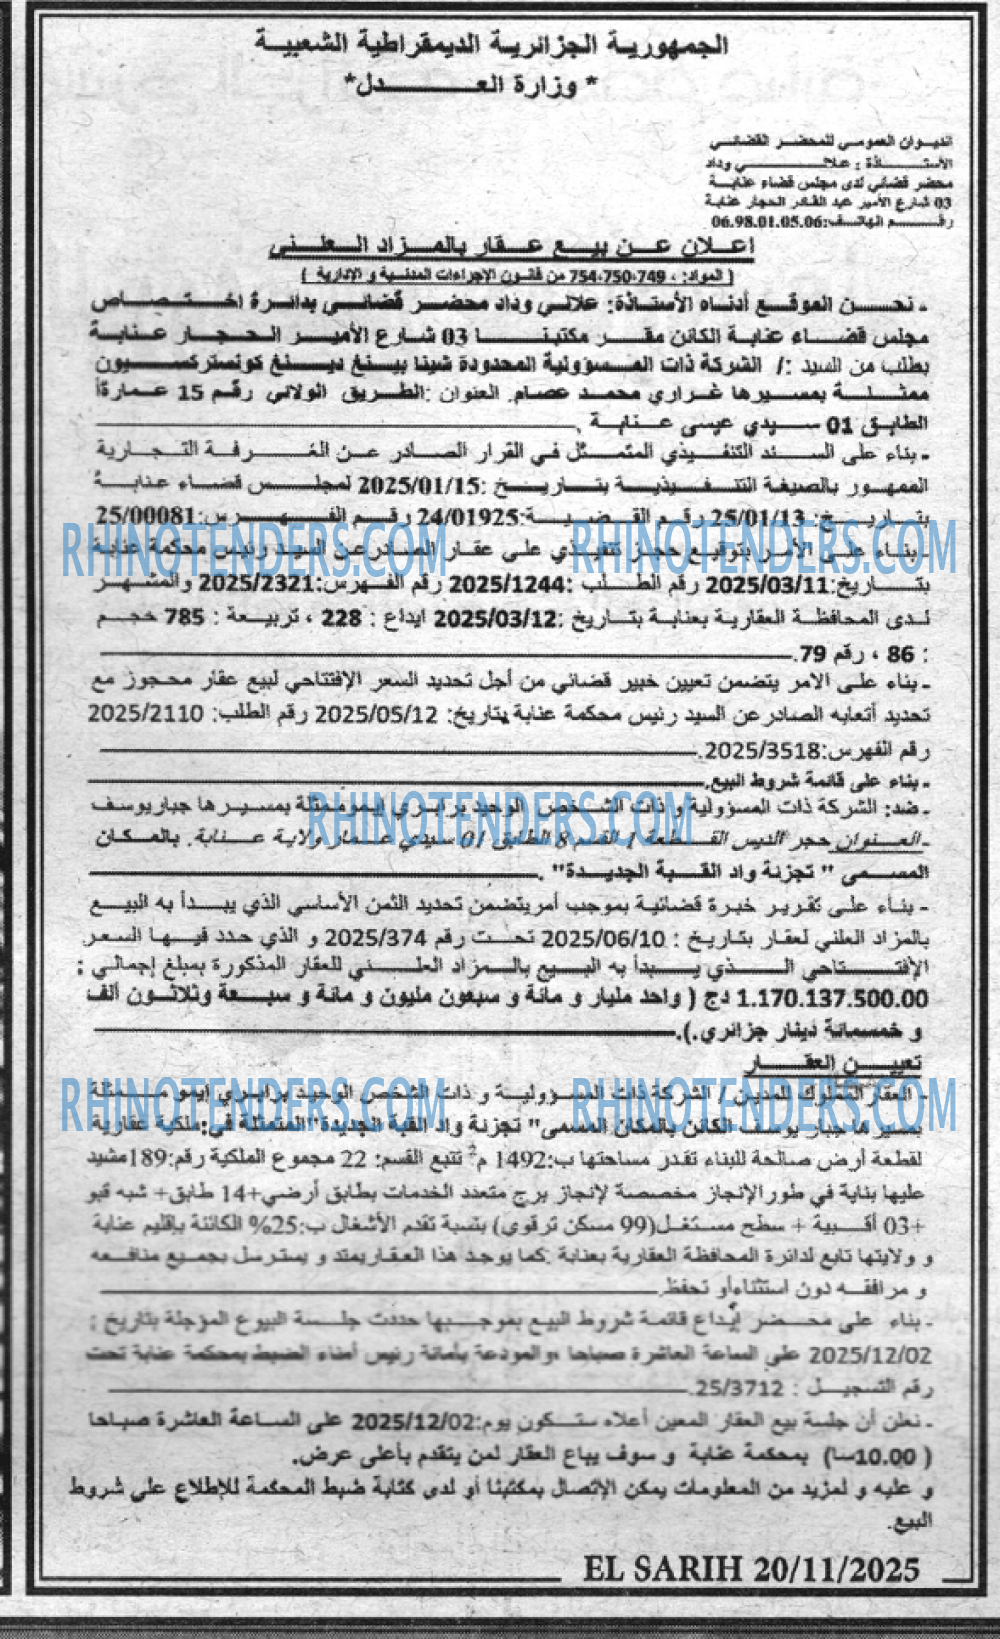 الجمهورية الجزائرية الديمقراطية الشعبية
* وزارة العدل*
الديوان العمومي للمحضر القضائي
الأستاذة : علالي وداد
محضر قضائي لدى مجلس قضاء عنابة
03 شارع الأمير عبد القادر الحجار عنابة
رقم الهاتف:06.98.01.05.06
إعلان عن بيع عقار بالمزاد العلني
( المواد: ، 749،750،754 من قانون الإجراءات المدنية و الإدارية )
- نحن الموقع أدناه الأستاذة: علالي وداد محضر قضائي بدائرة اختصاص
مجلس قضاء عنابة الكائن مقر مكتبنا 03 شارع الأمير الحجار عنابة
بطلب من السيد :/ الشركة ذات المسؤولية المحدودة شينا بينغ دينغ كونستركسيون
ممثلة بمسيرها غراري محمد عصام. العنوان :الطريق الولائي رقم 15 عمارةأ
الطابق 01 سيدي عيسى عنابة .
- بناء على السند التنفيذي المتمثل في القرار الصادر عن الغرفة التجارية
الممهور بالصيغة التنفيذية بتاريخ :2025/01/15 لمجلس قضاء عنابة
بتاريخ: 25/01/13 رقم القضية:24/01925 رقم الفهرس:25/00081
-بناء على الأمر بتوقيع حجز تنفيذي على عقار الصادرعن السيد رئيس محكمة عنابة
بتاريخ:2025/03/11 رقم الطلب :2025/1244 رقم الفهرس:2025/2321 والمشهر
لدى المحافظة العقارية بعنابة بتاريخ :2025/03/12 ايداع : 228 ، تربيعة : 785 حجم
: 86 ، رقم 79.
- بناء على الامر يتضمن تعيين خبير قضائي من أجل تحديد السعر الإفتتاحي لبيع عقار محجوز مع
تحديد أتعابه الصادرعن السيد رئيس محكمة عنابة بتاريخ: 2025/05/12 رقم الطلب: 2025/2110
رقم الفهرس:2025/3518.
- بناء على قائمة شروط البيع.
- ضد: الشركة ذات المسؤولية و ذات الشخص الوحيد برابري إيموممثلة بمسيرها جباريوسف
-العنوان حجر الديس القطعة / القسم 8 الطابق /0 سيدي عمار ولاية عنابة. بالمكان
المسمى " تجزئة واد القبة الجديدة" .
- بناء على تقرير خبرة قضائية بموجب أمريتضمن تحديد الثمن الأساسي الذي يبدأ به البيع
بالمزاد العلني لعقار بتاريخ : 2025/06/10 تحت رقم 2025/374 و الذي حدد فيها السعر
الإفتتاحي الذي يبدأ به البيع بالمزاد العلني للعقار المذكورة بمبلغ إجمالي :
1.170.137.500.00 دج ( واحد مليار و مائة و سبعون مليون و مائة و سبعة وثلاثون ألف
و خمسمائة دينار جزائري.).
تعيين العقار
- العقار المملوك للمدين / الشركة ذات المسؤولية و ذات الشخص الوحيد برابري إيمو ممثلة
بمسيرها جبار يوسف الكائن بالمكان المسمى" تجزئة واد القبة الجديدة"المتمثلة في:ملكية عقارية
لقطعة أرض صالحة للبناء تقدر مساحتها ب:1492 م2 تتبع القسم: 22 مجموع الملكية رقم:189مشيد
عليها بناية في طورالإنجاز مخصصة لإنجاز برج متعدد الخدمات بطابق أرضي+14 طابق+ شبه قبو
+03 أقبية + سطح مستغل(99 مسكن ترقوي) بنسبة تقدم الأشغال ب:25% الكائنة بإقليم عنابة
و ولايتها تابع لدائرة المحافظة العقارية بعنابة .كما يوجد هذا العقاريمتد و يسترسل بجميع منافعه
و مرافقه دون استثناءأو تحفظ.
- بناء على محضر إيداع قائمة شروط البيع بموجبها حددت جلسة البيوع المؤجلة بتاريخ :
2025/12/02 على الساعة العاشرة صباحا ،والمودعة بأمانة رئيس أمناء الضبط بمحكمة عنابة تحت
رقم التسجيل : 25/3712.
- نعلن أن جلسة بيع العقار المعين أعلاه ستكون يوم:2025/12/02 على الساعة العاشرة صباحا
( 10.00سا) بمحكمة عنابة و سوف يباع العقار لمن يتقدم بأعلى عرض.
و عليه و لمزيد من المعلومات يمكن الإتصال بمكتبنا أو لدى كتابة ضبط المحكمة للإطلاع على شروط
البيع.
EL SARIH 20/11/2025
RHINOTENDERS.COM
RHINOTENDERS.COM
RHINOTENDERS.COM
RHINOTENDERS.COM
RHINOTENDERS.COM